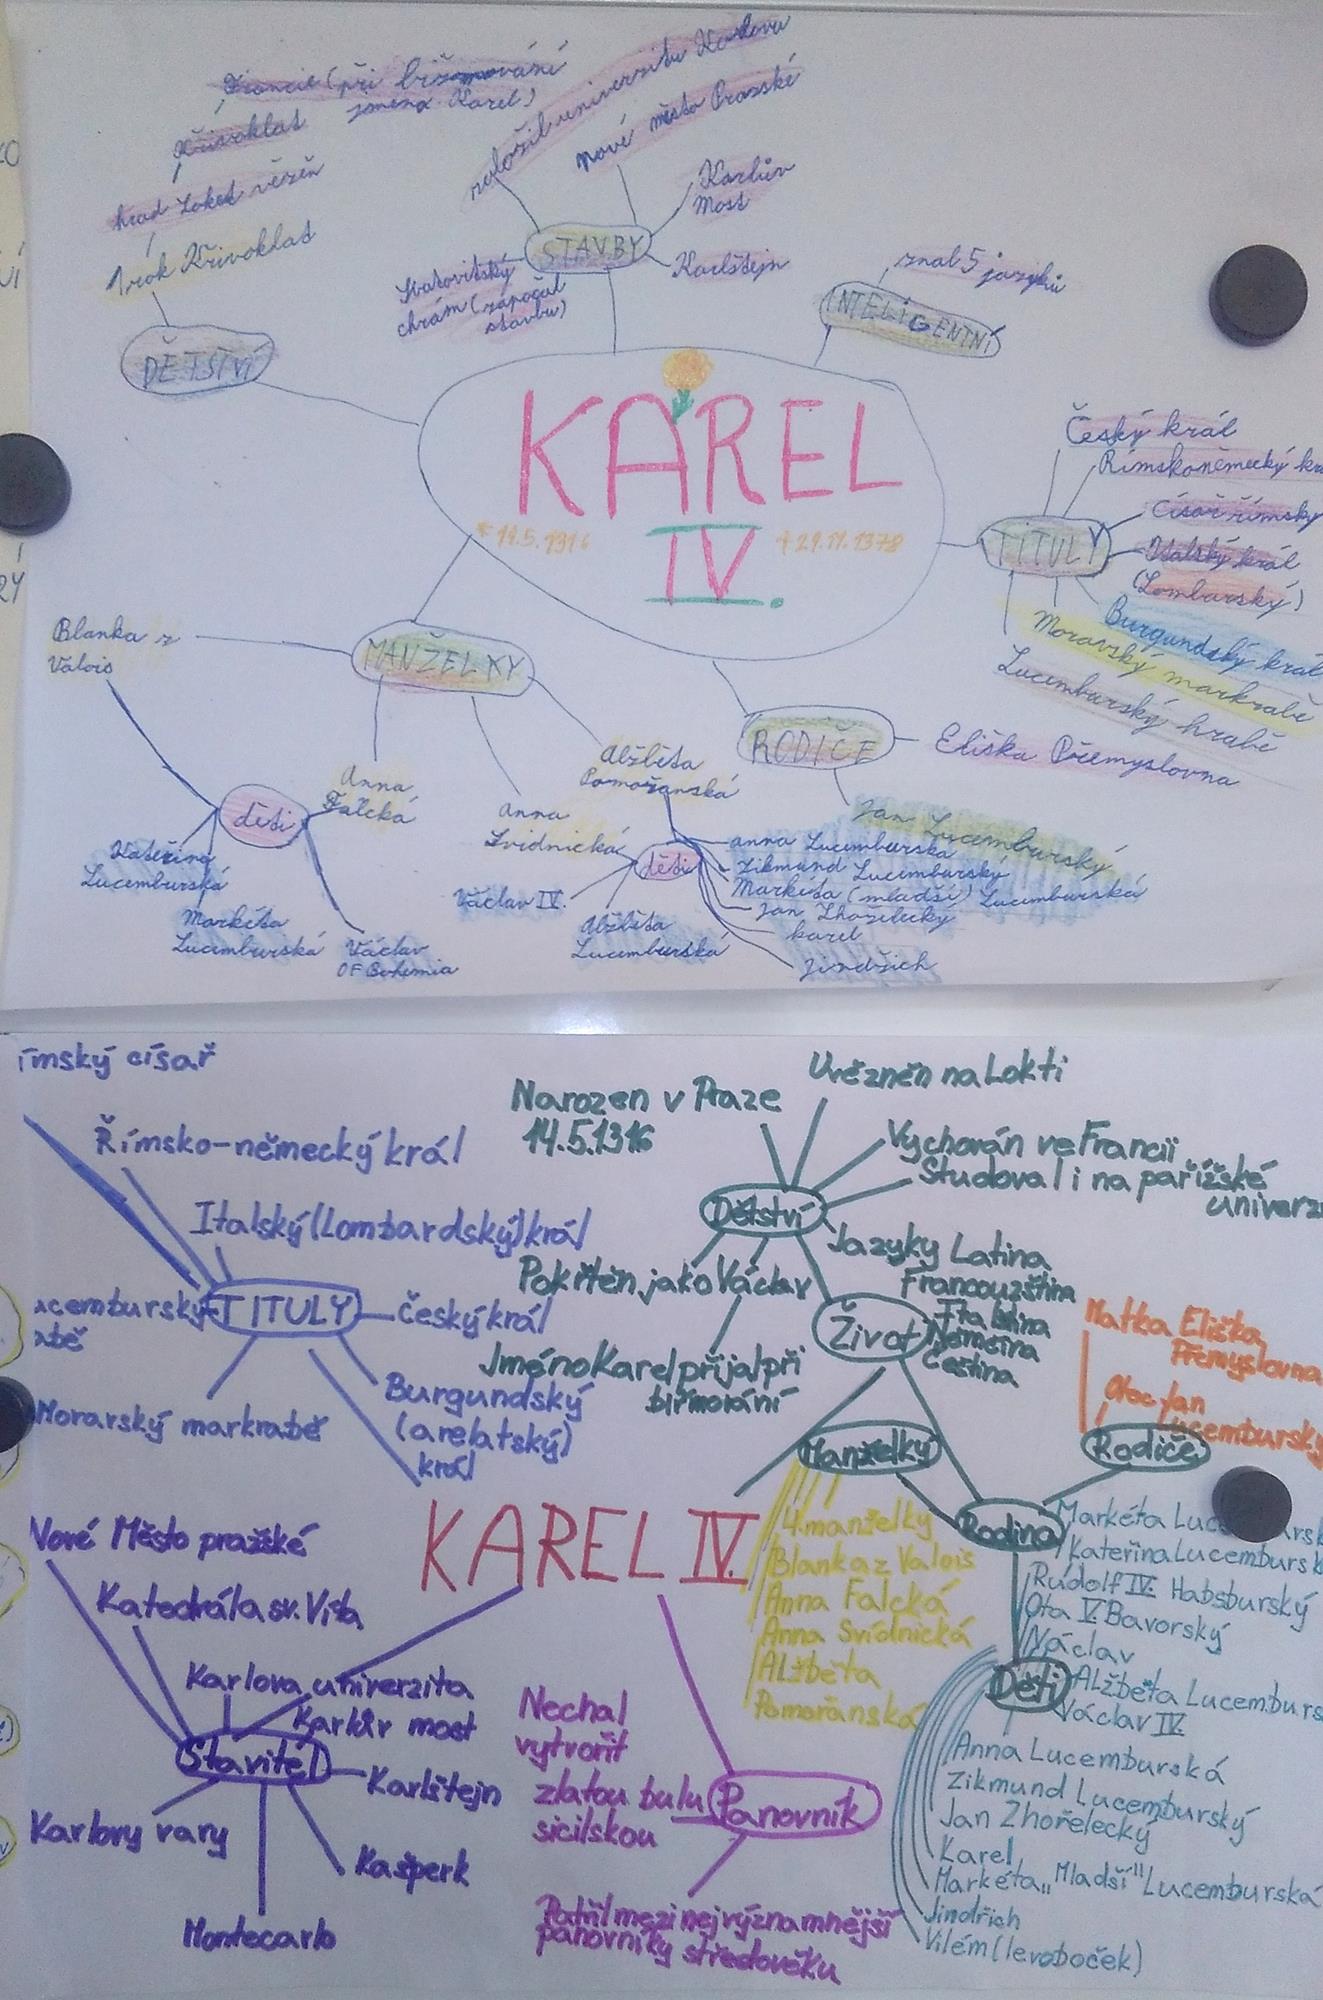 Francie (při biřmování
jméno Karel)
Křivoklat
hrad Loket vězěn
1 rok Křivoklat
DĚTSTVÍ
založil univerzitu Karlovu
nové město Pražské
Karlův
Most
Karlštejn
STAVBY
Svatovítský
chrám (započal
stavbu)
znal 5 jazyků
INTELIGENTNÍ
KAREL
IV.
* 14.5.1316
† 29.11.1378
Český král
Římskoněmecký
Císař římský
Italský král
(Lombarský)
TITULY
Burgundský král
Moravský markrabě
Lucemburský hrabě
Blanka z
Valois
MANŽELKY
RODIČE
Eliška Přemyslovna
Jan Lucemburský
Anna
Falcká
Anna
Svídnická
Alžběta
Pomořanská
děti
Kateřina
Lucemburská
Markéta
Lucemburská
Václav
OF Bohemia
děti
Václav IV.
Alžběta
Lucemburská
anna Lucemburska
Zikmund Lucemburský
Markéta (mladší) Lucemburská
Jan Zhořelecký
karel
Jindřich
ímský císař
Římsko-německý král
Italský (Lombardský) král
TITULY
ucemburský
abě
Český král
Moravský markrabě
Burgundský
(arelatský)
král
Narozen v Praze
14.5.1316
Uvězněn na Lokti
Vychován ve Francii
Studoval i na pařížské
univerz
Dětství
Pokřtěn jako Václav
Jméno Karel přijal při
biřmování
Jazyky Latina
Francouzština
Italština
Němčina
Čeština
Život
Matka Eliška
Přemyslovna
Otec Jan
Lucemburský
Rodiče
Manželky
Rodina
4 manželky
Blanka z Valois
Anna Falcká
Anna Svídnická
Alžběta
Pomořanská
KAREL IV.
Nové Město pražské
Katedrála sv. Víta
Karlova univerzita
Karlův most
Stavitel
Karlštejn
Karlovy vary
Kašperk
Montecarlo
Nechal
vytvořit
zlatou bulu
sicilskou
Panovník
Patřil mezi nejvýznamnější
panovníky středověku
Markéta
Kateřina Lucembursk
Rudolf IV. Habsburský
Ota V. Bavorský
Václav
Děti
Alžběta Lucemburs
Václav IV
Anna Lucemburská
Zikmund Lucemburský
Jan Zhořelecký
Karel
Markéta „Mladší" Lucemburská
Jindřich
Vilém (levoboček)